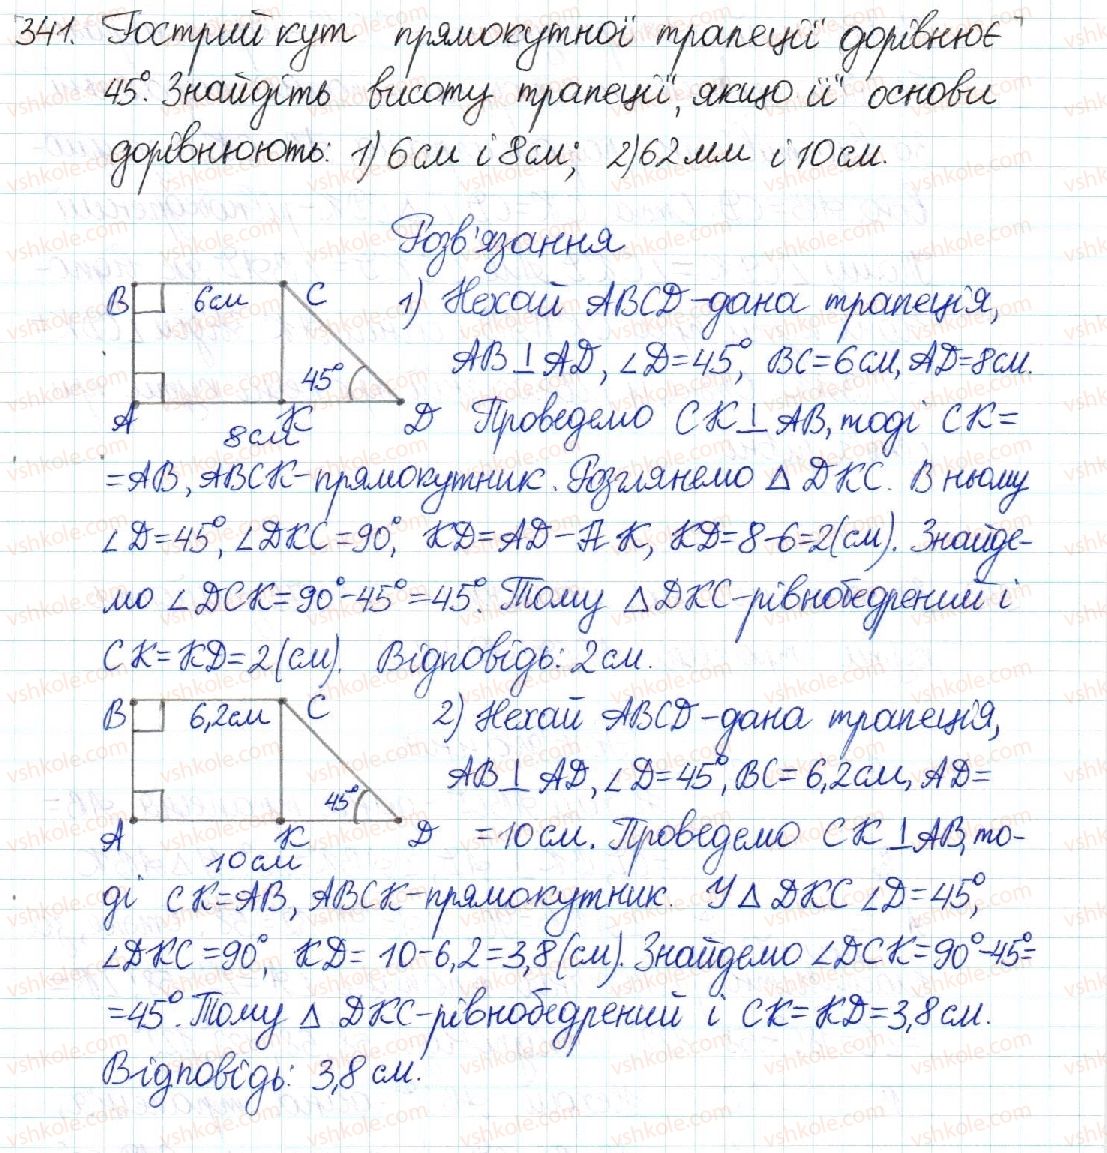 341. Гострий кут прямокутної трапеції дорівнює
45°. Знайдіть висоту трапеції, якщо її основи
дорівнюють: 1) 6 см і 8 см; 2) 62 мм і 10 см.
Розв'язання
B 6см C
45°
A K D
8см
1) Нехай ABCD - дана трапеція,
AB ⊥ AD, ∠D = 45°, BC = 6 см, AD = 8 см.
Проведемо CK ⊥ AB, тоді CK =
= AB, ABCK - прямокутник. Розглянемо △ DKC. В ньому
∠D = 45°, ∠DKC = 90°, KD = AD - AK, KD = 8 - 6 = 2 (см). Знайде-
мо ∠DCK = 90° - 45° = 45°. Тому △ DKC - рівнобедрений і
CK = KD = 2 (см). Відповідь: 2 см.
B 6,2см C
45°
A K D
10см
2) Нехай ABCD - дана трапеція,
AB ⊥ AD, ∠D = 45°, BC = 6,2 см, AD =
= 10 см. Проведемо CK ⊥ AB, то-
ді CK = AB, ABCK - прямокутник. У △ DKC ∠D = 45°,
∠DKC = 90°, KD = 10 - 6,2 = 3,8 (см). Знайдемо ∠DCK = 90° - 45° =
= 45°. Тому △ DKC - рівнобедрений і CK = KD = 3,8 см.
Відповідь: 3,8 см.
vshkole.com